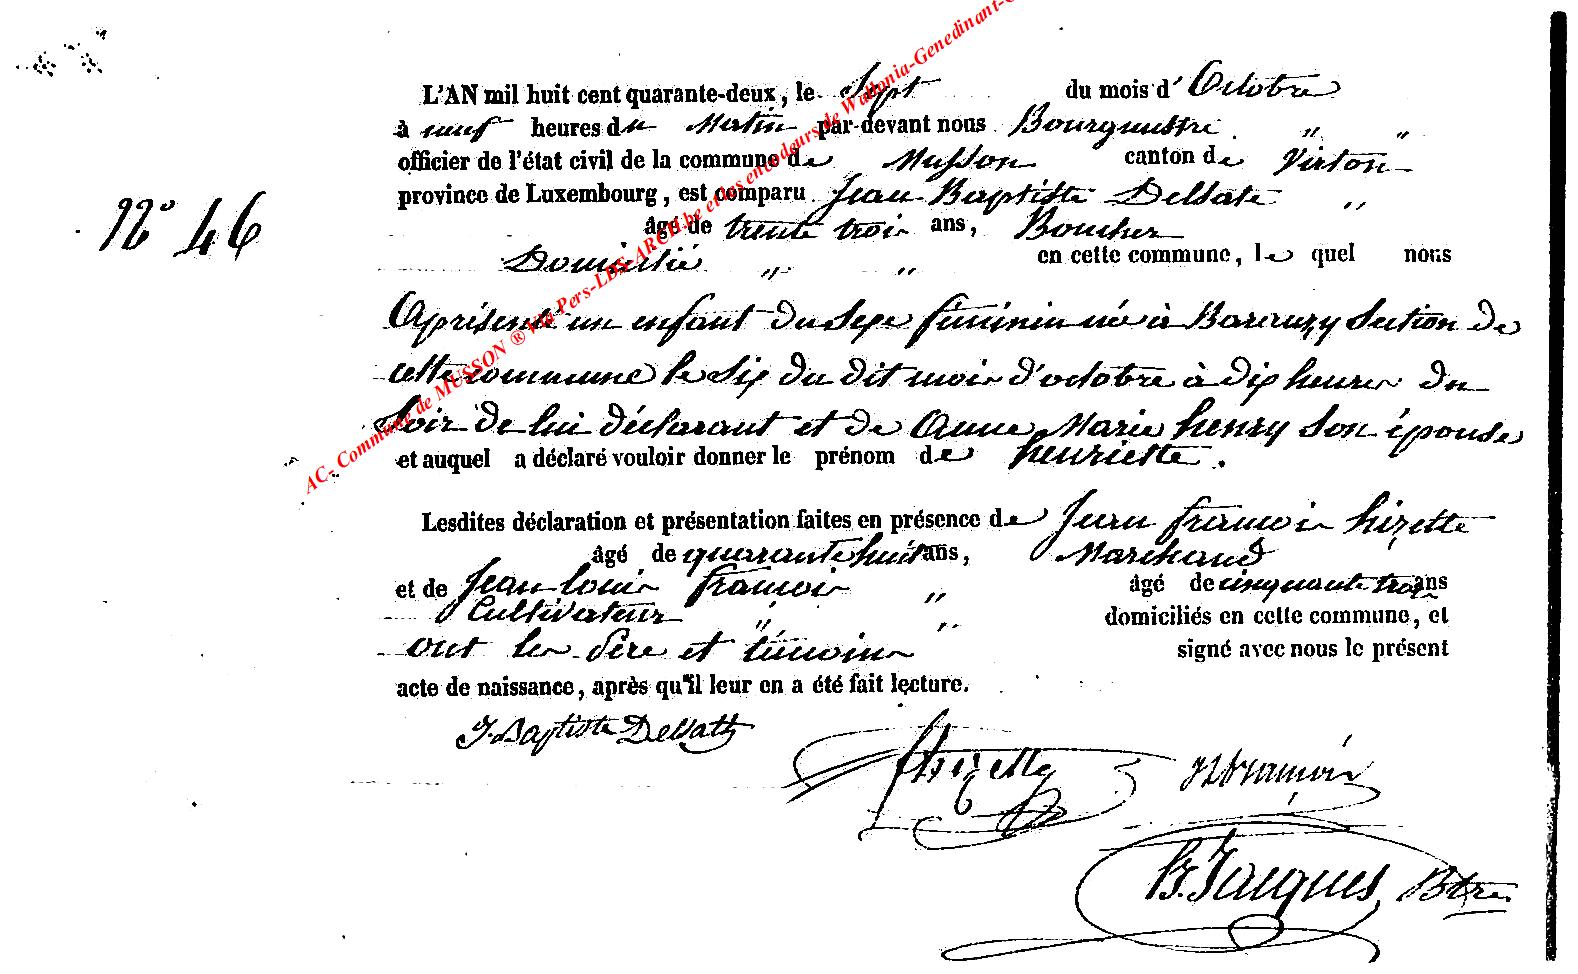 L'AN mil huit cent quarante-deux, le Sept du mois d'Octobre
à neuf heures du Matin par-devant nous Bourguestre " "
officier de l'état civil de la commune de Musson canton de Virton
province de Luxembourg, est comparu Jean Baptiste Delsate "
N° 46
âgé de trente trois ans, Boucher
Domicilié " " en cette commune, le quel nous
A présenté un enfant du sexe féminin né à Baranzy section de
cette commune le six du dit mois d'octobre à dix heures du
soir de lui déclarant et de Anne Marie henry son épouse
et auquel a déclaré vouloir donner le prénom de henriette.
Lesdites déclaration et présentation faites en présence de Jean françois hizette
âgé de quarante huit ans, Marchand
et de Jean Louis françois " âgé de cinquante trois ans
Cultivateur " " domiciliés en cette commune, et
ont les Père et témoins signé avec nous le présent
acte de naissance, après qu'il leur en a été fait lecture.
J. Baptiste Delsatte
hizette françois
B. Jacques Btre
AC- Commune de MUSSON ® Via Pers-LDS-ARCH.be et les encodeurs de Wallonia-Genedinant-